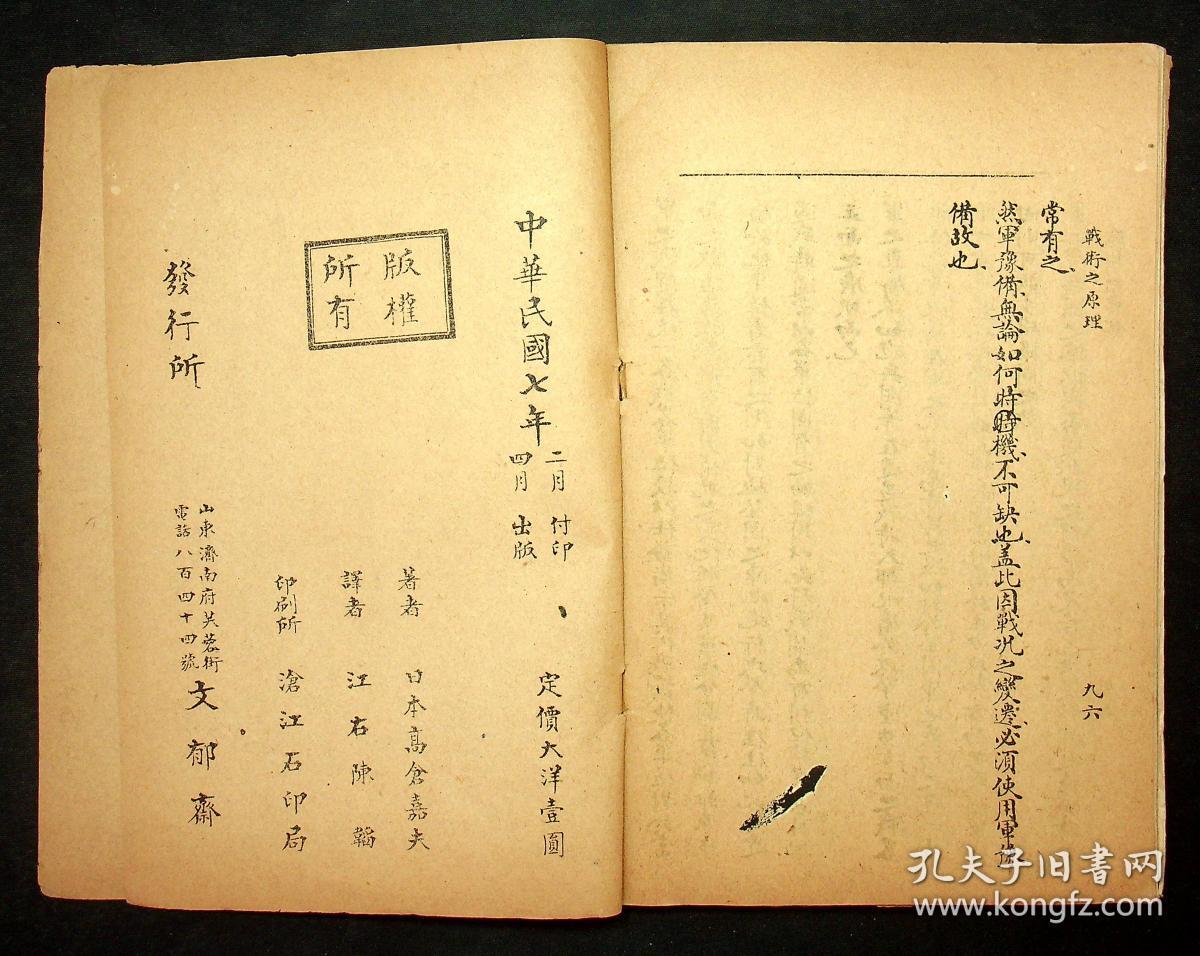 戰術之原理
九六
常有之、
然軍豫備、無論如何時時機、不可缺也、盖此因戰况之變遷、必須使用軍豫
備故也、
中華民國七年
二月付印
四月出版
定價大洋壹圓
版權
所有
著者 日本高倉嘉夫
譯者 江右陳韜
印刷所 滄江石印局
發行所
山東濟南府芙蓉街
電話八百四十四號
文郁齋
孔夫子旧书网
www.kongfz.com